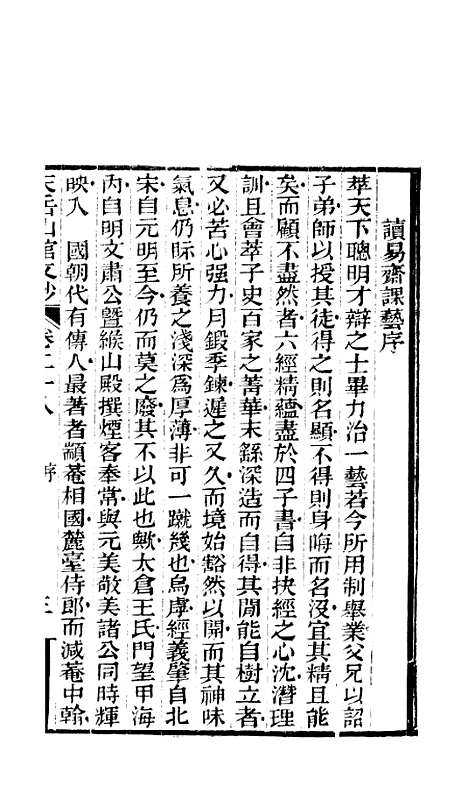 讀易齋課藝序
萃天下聰明才辯之士畢力治一藝若今所用制舉業父兄以詔
子弟師以授其徒得之則名顯不得則身晦而名沒宜其精且能
矣而顧不盡然者六經精蘊盡於四子書自非抉經之心沈潛理
訓且會萃子史百家之菁華末繇深造而自得其閒能自樹立者
又必苦心强力月鍛季鍊遲之又久而境始豁然以開而其神味
氣息仍眎所養之淺深爲厚薄非可一蹴幾也烏虖經義肇自北
宋自元明至今仍而莫之廢其不以此也歟太倉王氏門望甲海
內自明文肅公暨緱山殿撰煙客奉常與元美敬美諸公同時輝
映入　國朝代有傳人最著者顓菴相國麓臺侍郎而減菴中翰
天岳山館文鈔　卷二十八　序　三